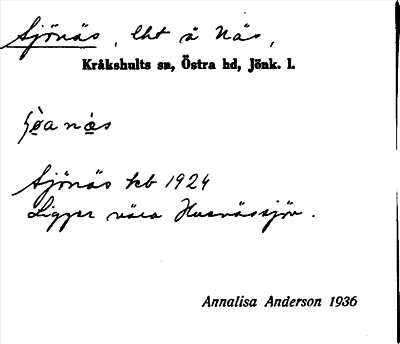 Sjönäs, lht å Näs,
Kråkshults sn, Östra hd, Jönk. l.
Sjönäs kb 1924
Ligger nära Husnässjön.
Annalisa Anderson 1936